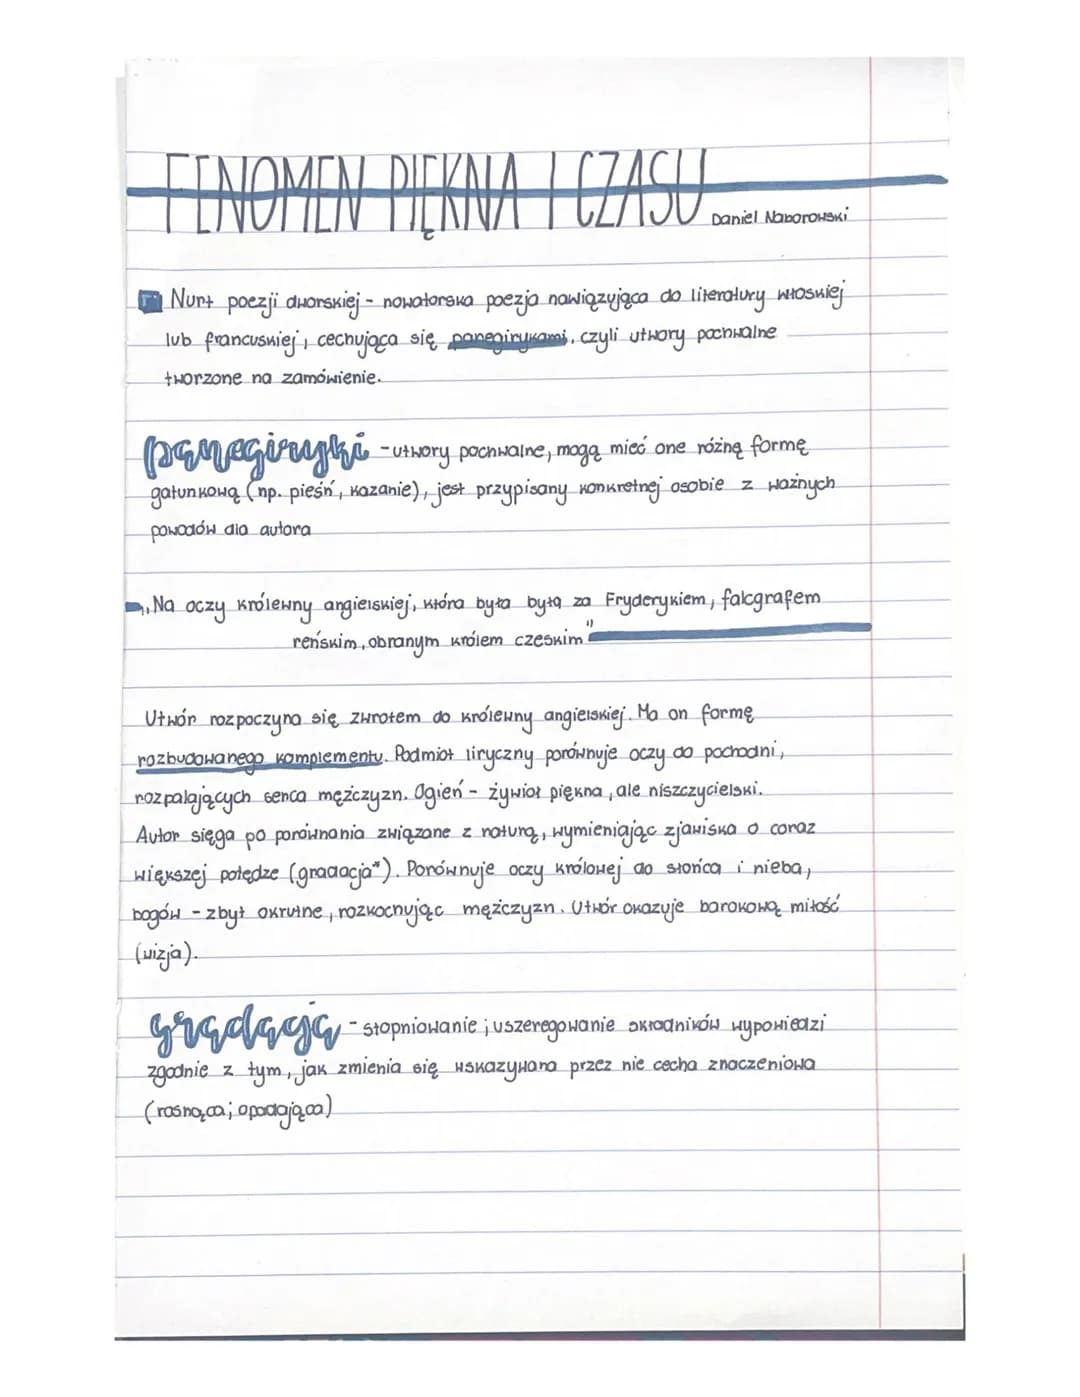 FENOMEN PIĘKNA I CZASU
Daniel Naborowski
Nurt poezji dworskiej - nowatorska poezja nawiązująca do literatury włoskiej
lub francuskiej, cechująca się panegirykami, czyli utwory pochwalne
tworzone na zamówienie.
panegiryki - utwory pochwalne, mogą mieć one różną formę
gatunkową (np. pieśń, kazanie), jest przypisany konkretnej osobie z ważnych
powodów dla autora
„Na oczy królewny angielskiej, która była byłą za Fryderykiem, falcgrafem
reńskim, obranym królem czeskim"
Utwór rozpoczyna się zwrotem do królewny angielskiej. Ma on formę
rozbudowanego komplementu. Podmiot liryczny porównuje oczy do pochodni,
rozpalających serca mężczyzn. Ogień - żywioł piękna, ale niszczycielski.
Autor sięga po porównania związane z naturą, wymieniając zjawiska o coraz
większej potędze (gradacja*). Porównuje oczy królowej do słońca i nieba,
bogów - zbyt okrutne, rozkochując mężczyzn. Utwór okazuje barokową miłość
(wizja).
gradacja - stopniowanie; uszeregowanie składników wypowiedzi
zgodnie z tym, jak zmienia się wskazywana przez nie cecha znaczeniowa
(rosnąca; opadająca)